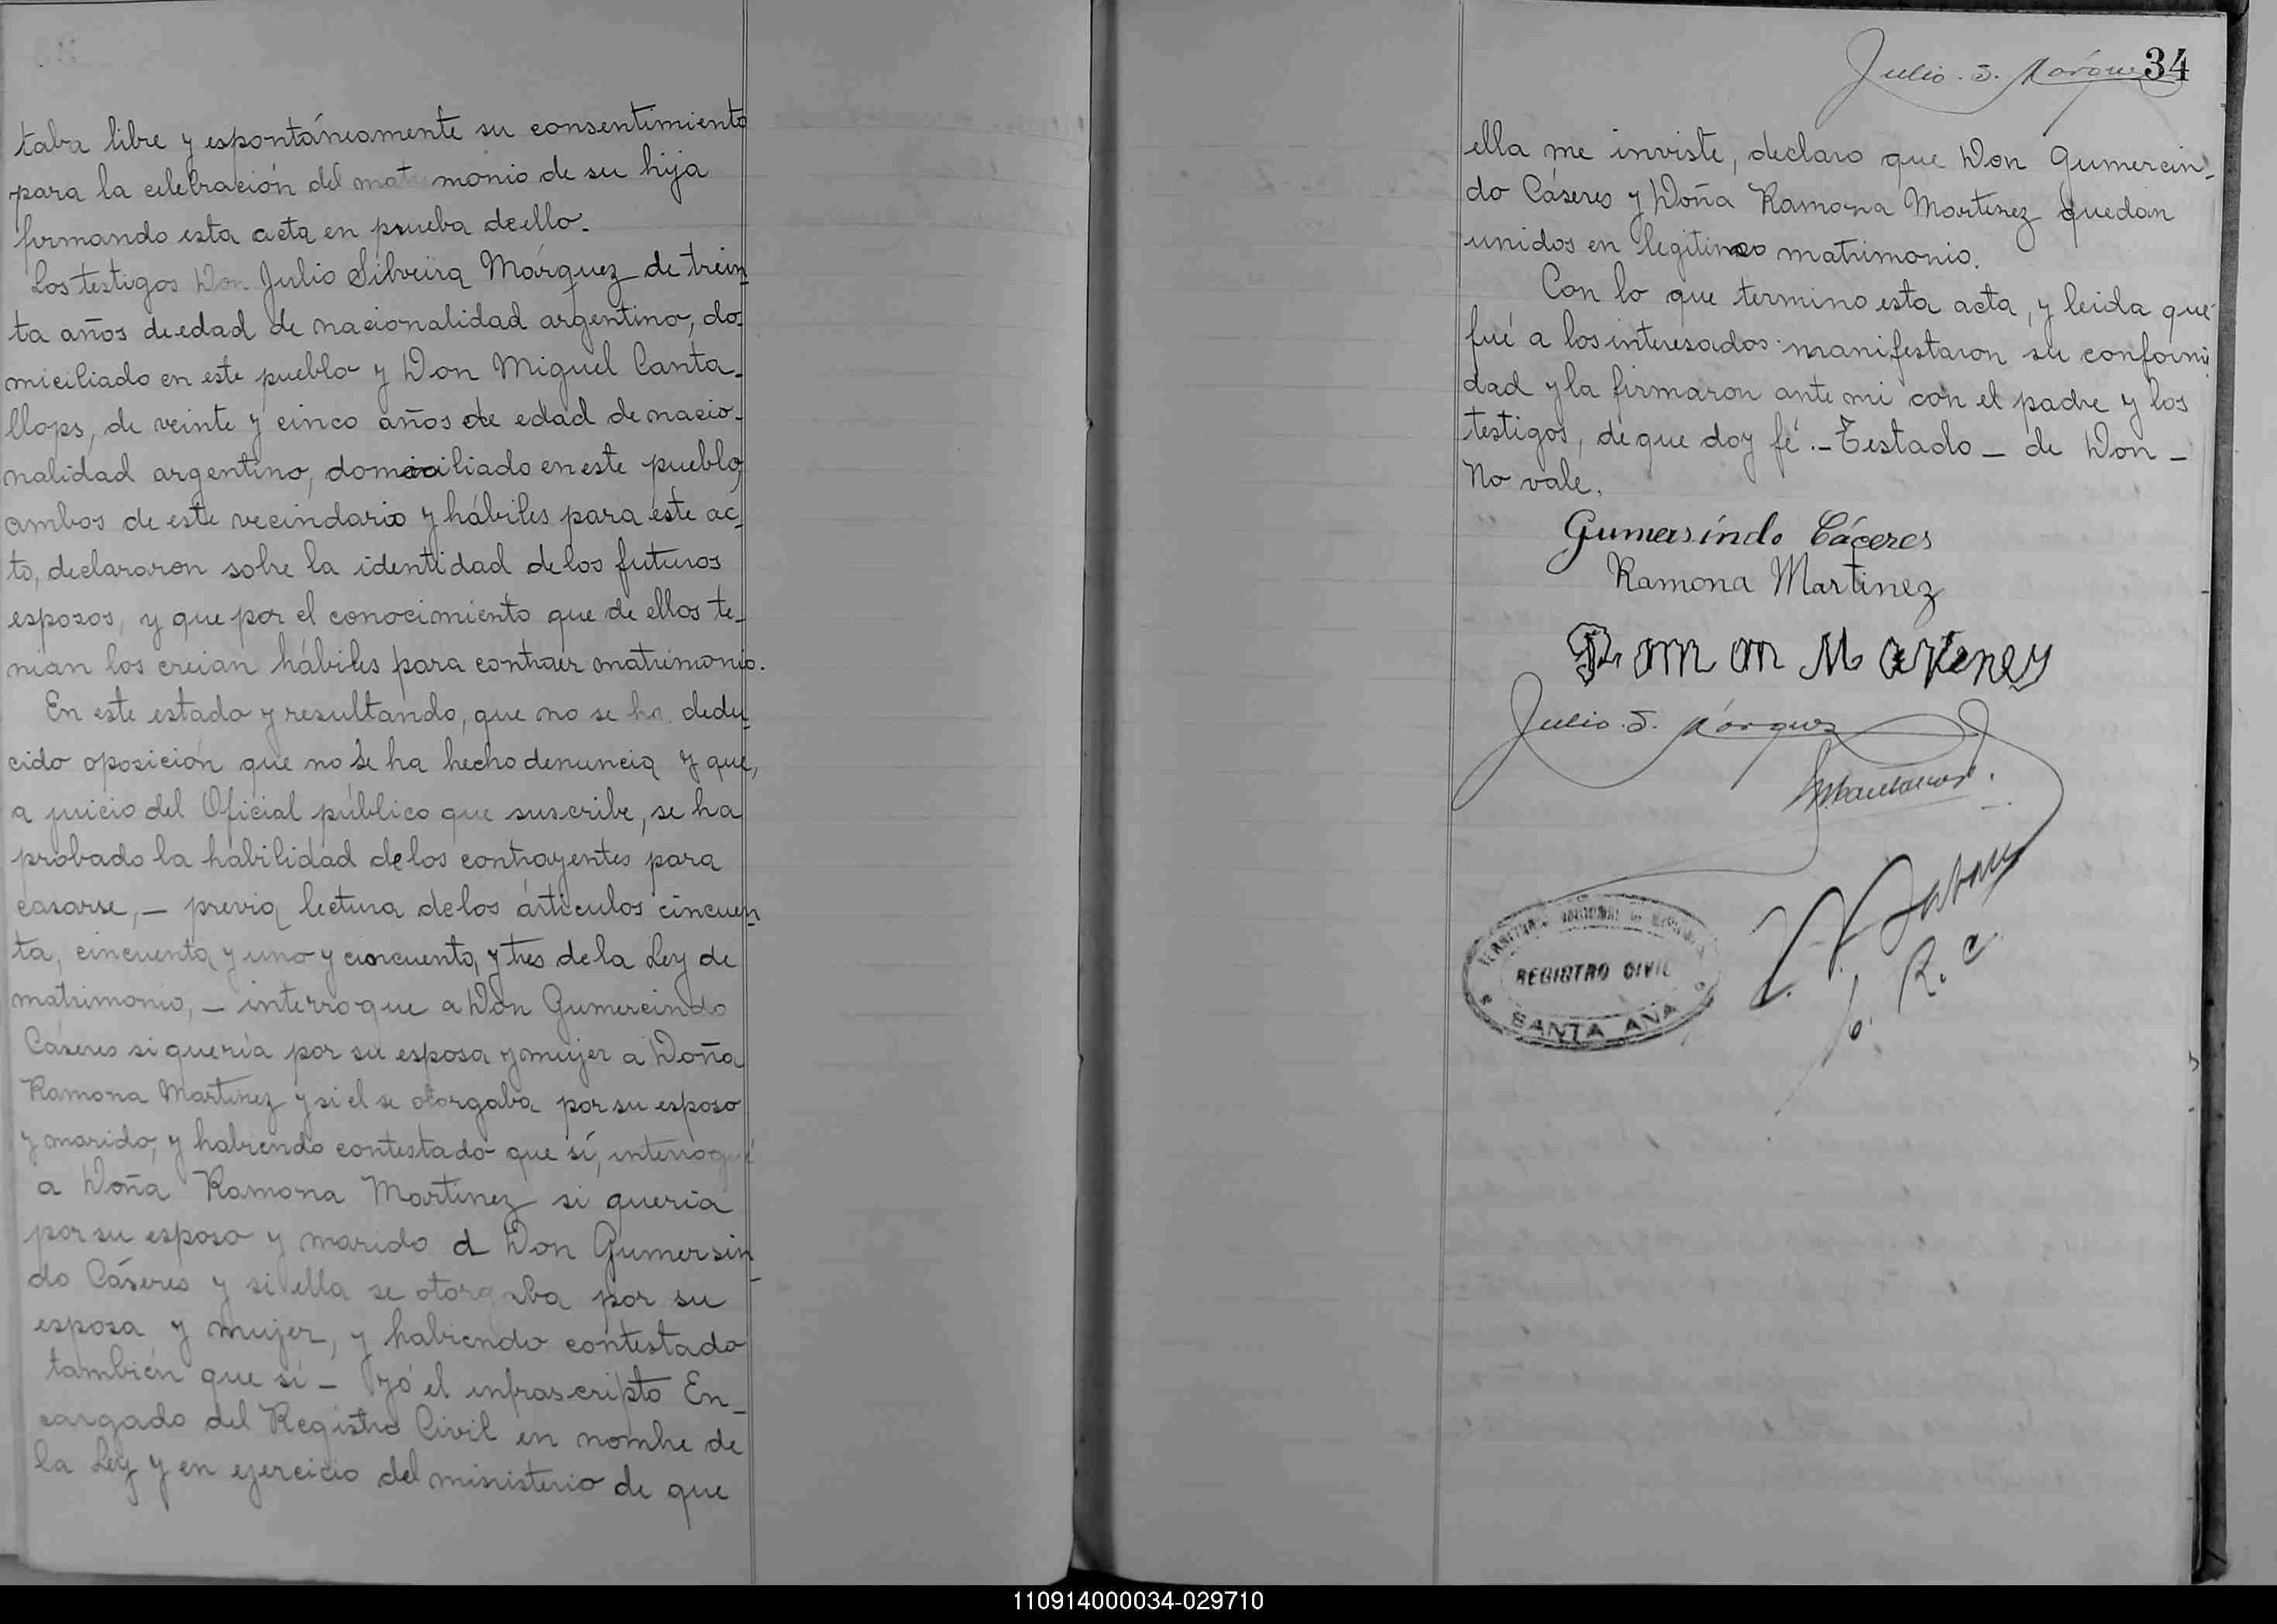 taba libre y espontáneamente su consentimiento
para la celebración del matrimonio de su hija
firmando esta acta en prueba de ello.
Los testigos Don Julio Silveira Márquez de trein_
ta años de edad de nacionalidad argentino, do_
miciliado en este pueblo y Don Miguel Canta_
llops, de veinte y cinco años de edad de nacio_
nalidad argentino, domiciliado en este pueblo,
ambos de este vecindario y hábiles para este ac_
to, declararon sobre la identidad de los futuros
esposos, y que por el conocimiento que de ellos te_
nian los creian hábiles para contraer matrimonio.
En este estado y resultando, que no se ha dedu_
cido oposición que no se ha hecho denuncia y que,
a juicio del Oficial público que suscribe, se ha
probado la habilidad de los contrayentes para
casarse, — previa lectura de los artículos cincuen_
ta, cincuenta y uno y cincuenta y tres de la Ley de
matrimonio, — interrogue a Don Gumercindo
Cáseres si quería por su esposa y mujer a Doña
Ramona Martinez y si el se otorgaba por su esposo
y marido, y habiendo contestado que sí, interrogué
a Doña Ramona Martinez si quería
por su esposo y marido a Don Gumersin_
do Cáseres y si ella se otorgaba por su
esposa y mujer, y habiendo contestado
también que sí — Yo el infrascripto En_
cargado del Registro Civil en nombre de
la Ley y en ejercicio del ministerio de que
Julio S. Márquez
34
ella me inviste, declaro que Don Gumercin_
do Cáseres y Doña Ramona Martinez quedan
unidos en legitimo matrimonio.
Con lo que termino esta acta, y leida que
fué a los interesados manifestaron su conformi
dad y la firmaron ante mi con el padre y los
testigos, de que doy fé. — Testado — de Don —
No vale.
Gumersíndo Cáceres
Ramona Martinez
Ramon Marteney
Julio S. Márquez
REGISTRO CIVIL
SANTA ANA
R. C.
110914000034-029710